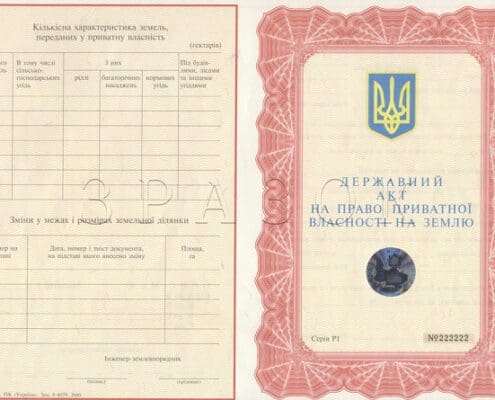 Кількісна характеристика земель,
переданих у приватну власність
(гектарів)
ого
В тому числі
сільсько-
господарських
угідь
З них
ріллі
багаторічних
насаджень
кормових
угідь
Під будів-
лями, лісами
та іншими
угіддями
ЗРАЗОК
Зміни у межах і розмірах земельної ділянки
ер на
ні
Дата, номер і зміст документа,
на підставі якого внесено зміну
Площа,
га
Інженер-землевпорядник
(підпис)
(прізвище)
ПК «Україна». Зам.
ДЕРЖАВНИЙ
АКТ
НА ПРАВО ПРИВАТНОЇ
ВЛАСНОСТІ НА ЗЕМЛЮ
Серія Р1
№222222